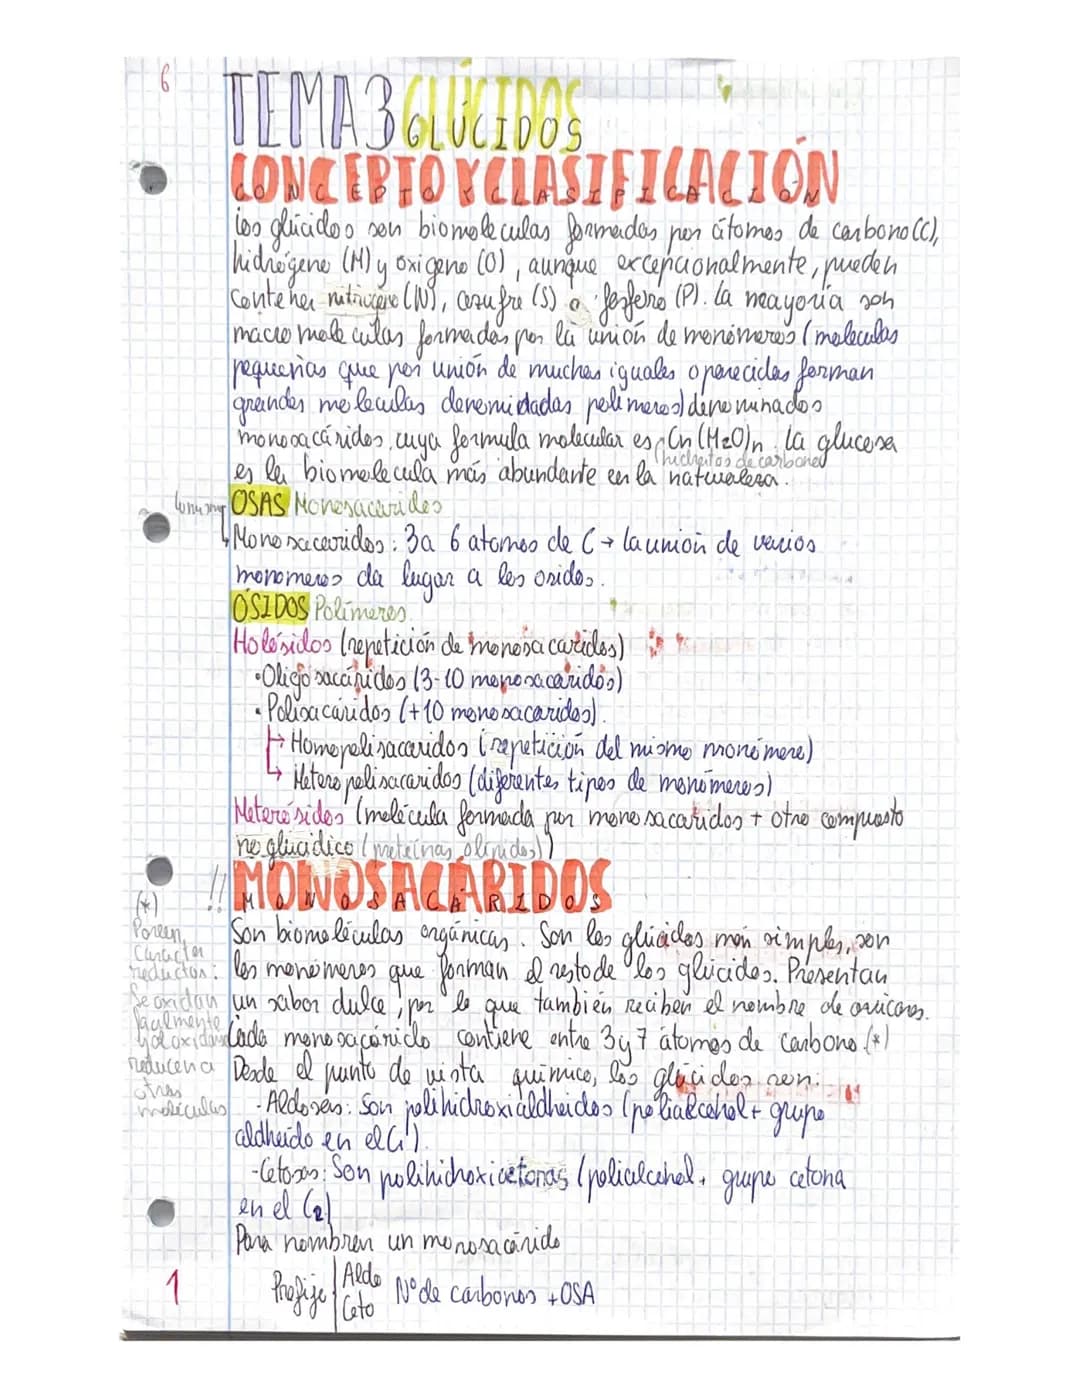 6
TEMA 3 GLÚCIDOS
CONCEPTO Y CLASIFICACIÓN
Los glúcidos son biomoleculas formadas por átomos de carbono (C),
hidrógeno (H) y oxigeno (O), aunque excepcionalmente, pueden
contener nitrógeno (N), azufre (S) o fósforo (P). La mayoría son
macromoleculas formadas por la unión de monómeros (moleculas
pequeñas que por unión de muchas iguales o parecidas forman
grandes moleculas denomidadas polimeros) denominados
monosacáridos, cuya formula molecular es Cn(H2O)n. La glucosa
(hidratos de carbono)
es la biomolecula más abundante en la naturaleza.
OSAS Monosacaridos
Monosacaridos: 3 a 6 atomos de C → la unión de varios
monomeros da lugar a los osidos.
ÓSIDOS Polímeros
Holósidos (repetición de monosacaridos)
• Oligosacáridos (3-10 monosacáridos)
• Polisacáridos (+10 monosacaridos).
→ Homopolisacaridos (repetición del mismo monómero)
→ Heteropolisacaridos (diferentes tipos de monómeros)
Heterósidos (molécula formada por monosacaridos + otro compuesto
no glucidico (proteínas o lípidos))
!! MONOSACÁRIDOS
Son biomoléculas orgánicas. Son los glúcidos más simples, son
los monómeros que forman el resto de los glúcidos. Presentan
un sabor dulce, por lo que también reciben el nombre de azúcares.
Cada monosacárido contiene entre 3 y 7 átomos de carbono. (*)
(*)
Poseen
Caracter
reductor:
Se oxidan
facilmente
y al oxidarse
reducen a
otras
moléculas
Desde el punto de vista químico, los glúcidos son:
- Aldosas: Son polihidroxialdheidos (polialcohol + grupo
aldheído en el C1).
- Cetosas: Son polihidroxicetonas (polialcohol + grupo cetona
en el C2)
Para nombrar un monosacárido
Prefijo | Aldo
Ceto
Nº de carbonos + OSA
1